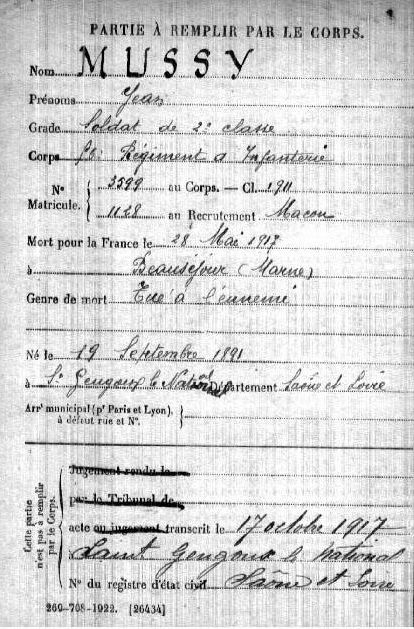 PARTIE À REMPLIR PAR LE CORPS.
Nom MUSSY
Prénoms Jean
Grade Soldat de 2e classe
Corps Régiment d'Infanterie
N° Matricule. { 3599 au Corps. — Cl. 1911
1128 au Recrutement Macon
Mort pour la France le 28 Mai 1917
à Beauséjour (Marne)
Genre de mort Tué à l'ennemi
Né le 19 Septembre 1891
à St Gengoux le National Département Saône et Loire
Arrt municipal (pr Paris et Lyon),
à défaut rue et N°. {
Cette partie n'est pas à remplir par le Corps.
Jugement rendu le
par le Tribunal de
acte ou jugement transcrit le 17 octobre 1917
Saint Gengoux le National
N° du registre d'état civil Saône et Loire
260-708-1922. [26434]